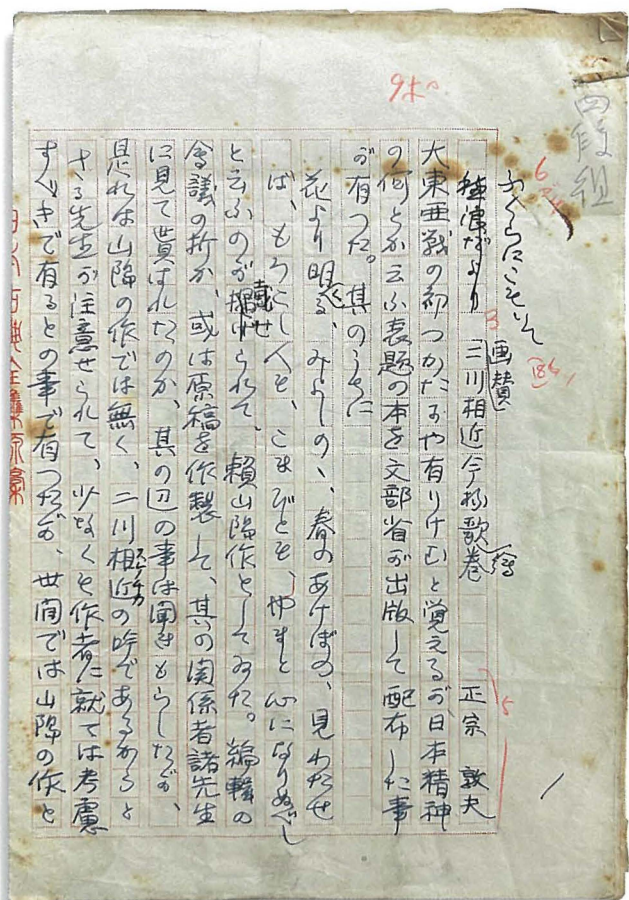 四段組
9ポ
さくらにこそいて
雑浪だより 二川相近今様歌巻 正宗 敦夫
画賛
大東亜戦の初つかたにや有りけむと覚えるが、日本精神
の何とか云ふ表題の本を文部省が出版して配布した事
が有つた。其のうちに
花より明くる、みよしのゝ、春のあけぼの、見わたせ
ば、もろこし人も、こまびとも、やまと心になりぬべし
と云ふのが載せられて、頼山陽作としてゐた。編輯の
会議の折か、或は原稿を作製して、其の関係者諸先生
に見て貰はれたのか、其の辺の事は聞きもらしたが、
是れは山陽の作では無く、二川相近の吟であるからと
スケチカ
さる先生が注意せられて、少なくも作者に就ては考慮
すべきで有るとの事で有つたが、世間では山陽の作と
日本古典全集原稾